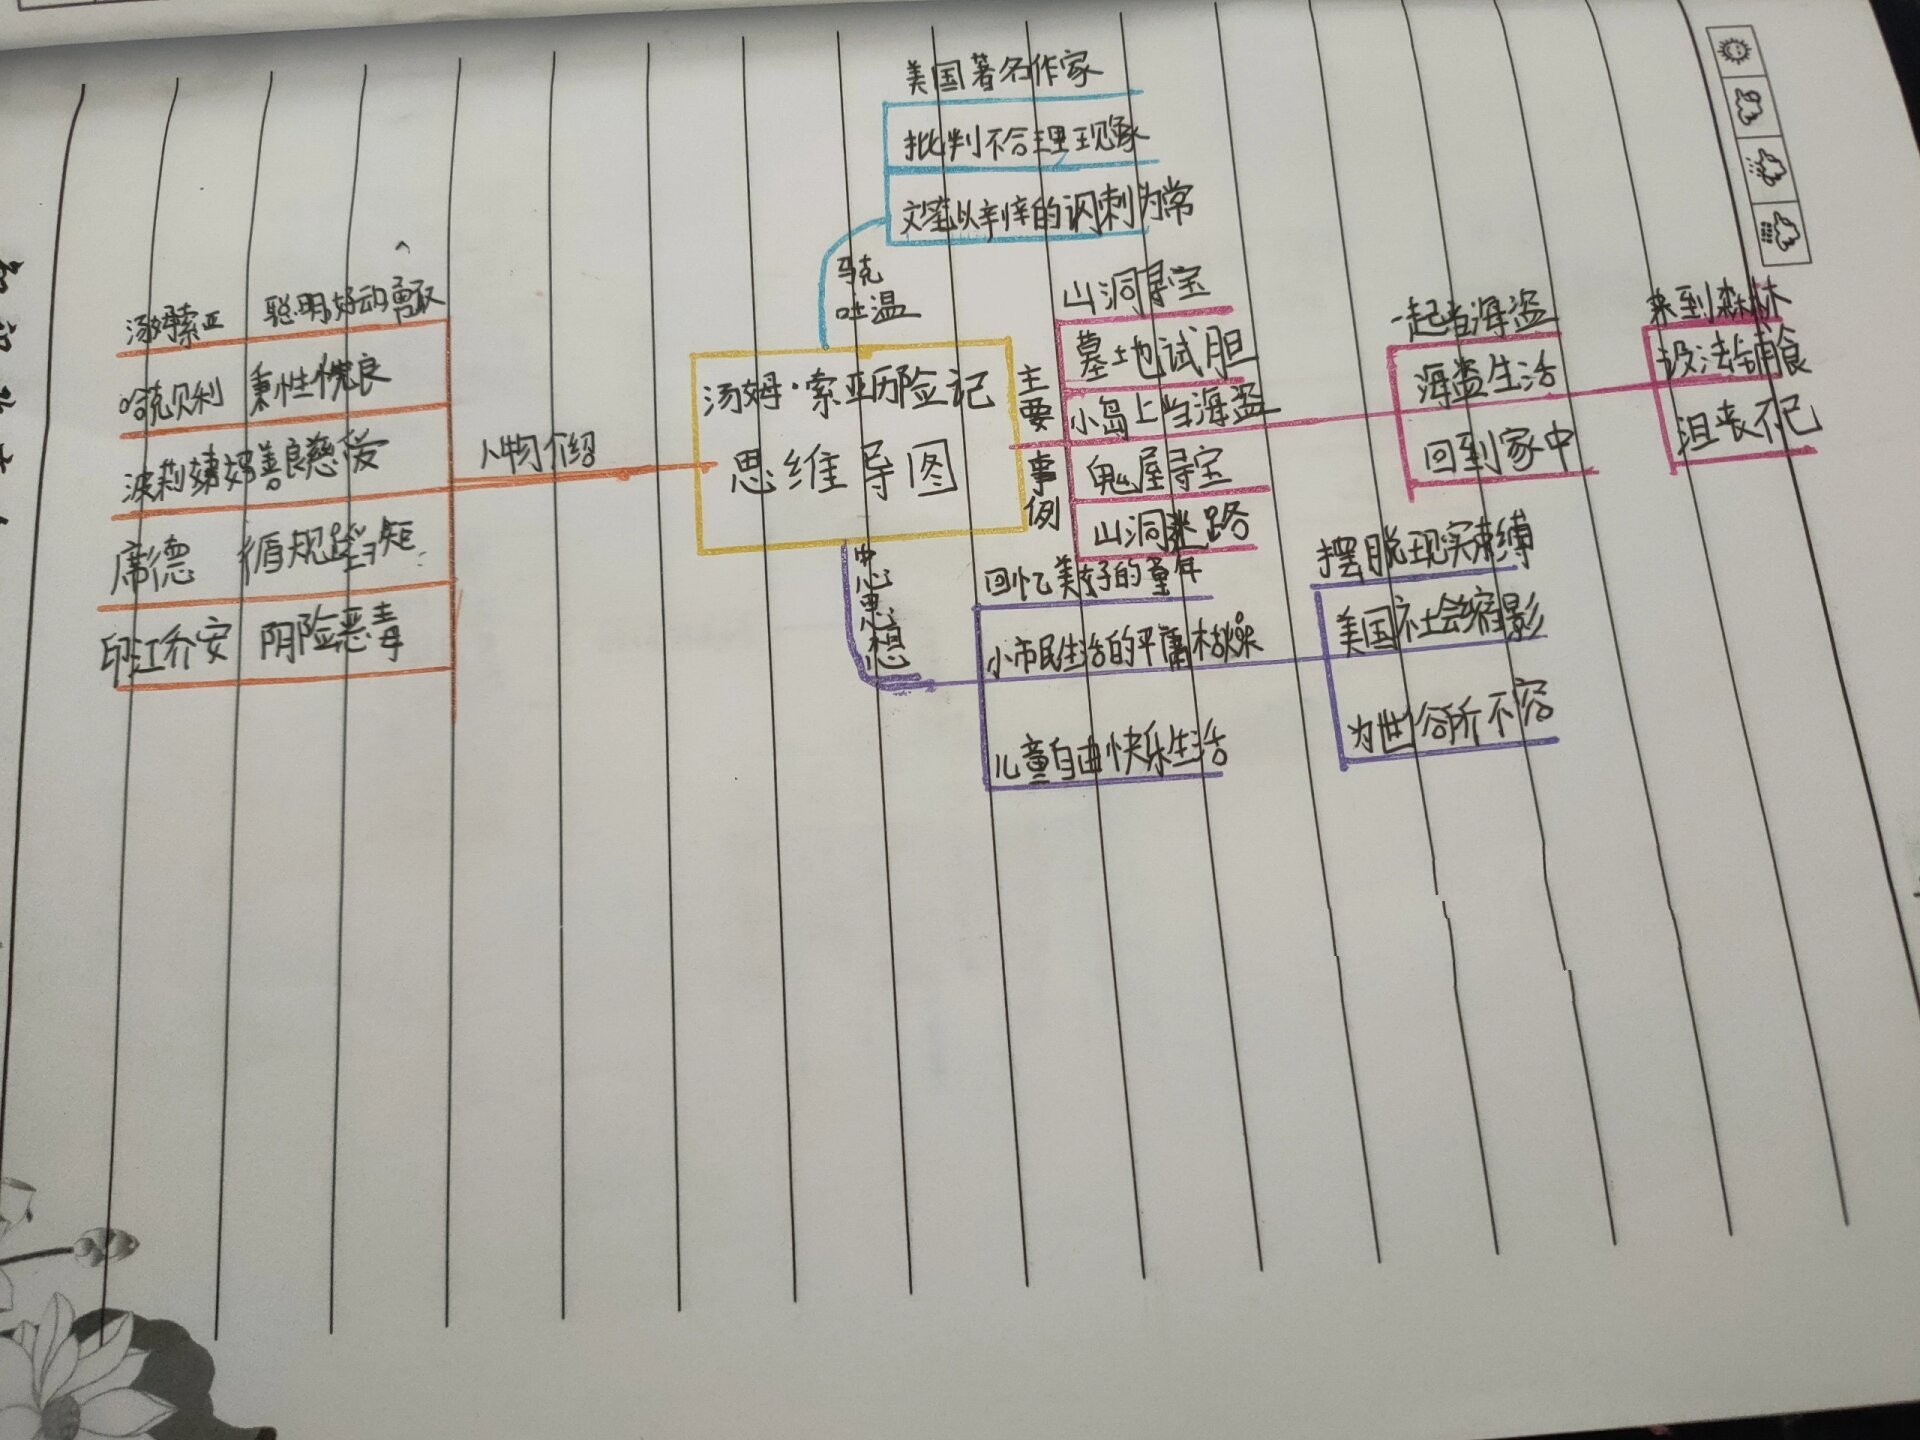 美国著名作家
批判不合理现象
文笔以辛悻的讽刺为常
马克
吐温
汤姆·索亚历险记
思维导图
人物介绍
汤姆索亚 聪明好动勇敢
哈克贝利 秉性恍良
波莉姨妈善良慈爱
席德 循规蹈矩
印江乔安 阴险恶毒
主要
事例
山洞寻宝
墓地试胆
小岛上当海盗
鬼屋寻宝
山洞迷路
一起当海盗
海盗生活
回到家中
来到森林
设法铺食
沮丧不已
中心思想
回忆美好的童年
小市民生活的平庸枯燥
儿童自由快乐生活
摆脱现实束缚
美国社会缩影
为世俗所不容